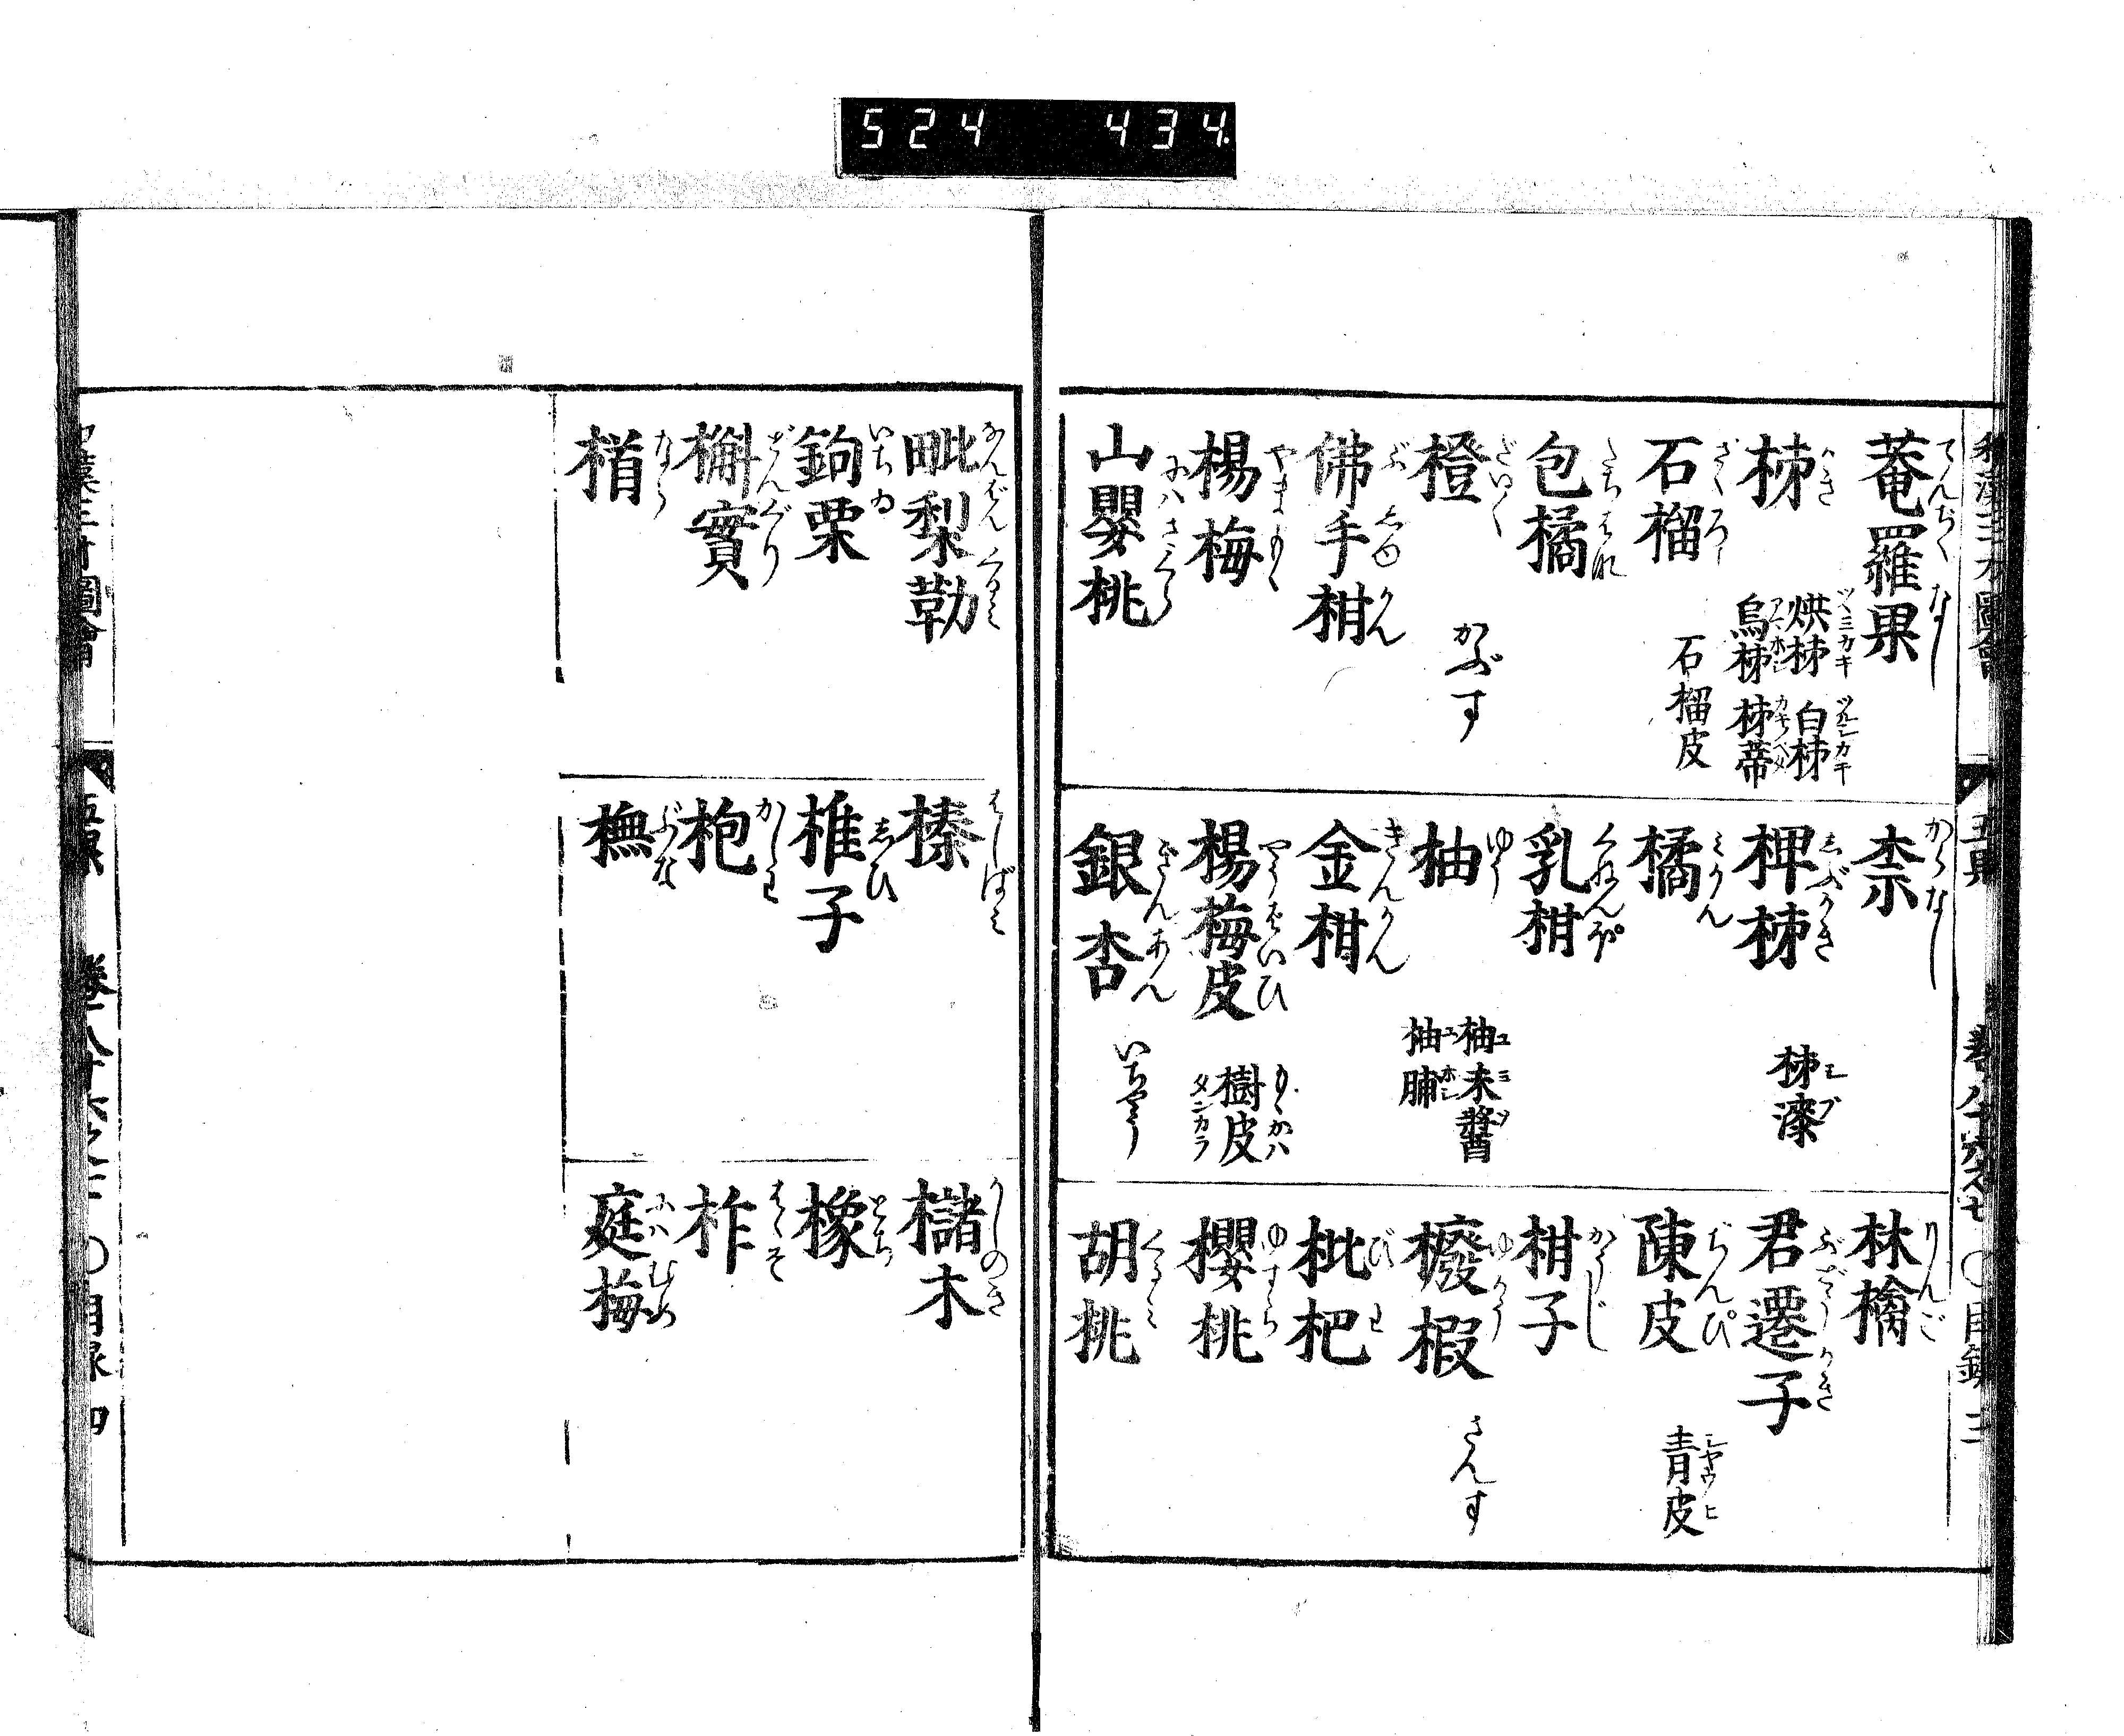 524 434
菴羅果 てんぢくなし
柰 からなし
林檎 りんご
柹 かき
烘柹 ツヽミカキ 白柹 ツルシカキ
烏柹 アマホシ 柹蒂 カキノヘタ
椑柹 しぶかき
柹漆 シブ
君遷子 ぶどうがき
石榴 ざくろ
石榴皮
橘 みかん
陳皮 ちんぴ
青皮 シヤウヒ
包橘 たちばな
乳柑 くねんぽ
柑子 かうじ
橙 だいだい
かぶす
柚 ゆう
柚未醬 ユミソ
柚脯 ユホシ
櫠椵 ゆかう
さんす
佛手柑 ぶしゆかん
金柑 きんかん
枇杷 びわ
楊梅 やまもゝ
楊梅皮 やうばいひ
樹皮 もゝかハ タンカラ
櫻桃 ゆすら
山嬰桃 にハさくら
銀杏 ぎんあん
いちやう
胡桃 くるみ
和漢三才圖會 五果 巻八十六之七 〇目録 三
毗梨勒 なんばんくるみ
榛 はしばみ
櫧木 かしのき
鉤栗 いちゐ
椎子 しひ
橡 とち
槲實 どんぐり
枹 かしわ
柞 はゝそ
楢 なら
橅 ぶな
庭梅 にハむめ
目録 四